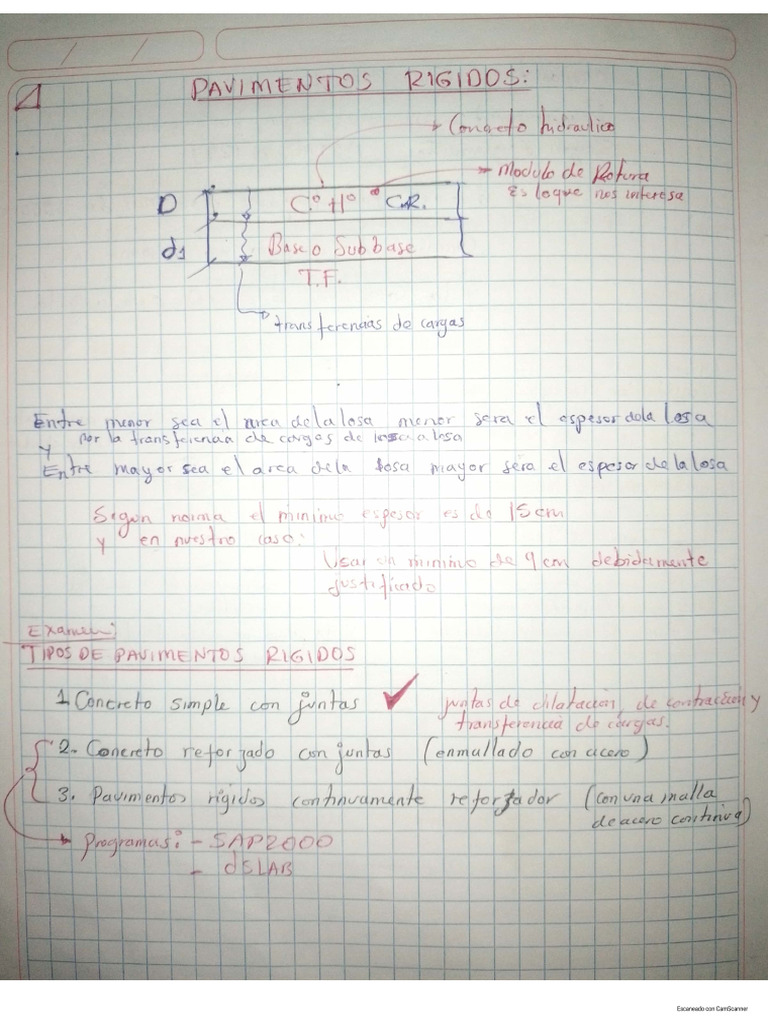 1
PAVIMENTOS RIGIDOS:
Concreto hidraulico
Modulo de Rotura
Es lo que nos interesa
D
C° H° C.R.
d1
Base o Subbase
T.F.
transferencias de cargas
Entre menor sea el area de la losa menor sera el espesor de la losa
y por la transferencia de cargas de losa a losa
Entre mayor sea el area de la losa mayor sera el espesor de la losa
Segun norma el minimo espesor es de 15cm
y en nuestro caso:
Usar un minimo de 9cm debidamente
justificado
Examen:
TIPOS DE PAVIMENTOS RIGIDOS
1. Concreto simple con juntas
juntas de dilatacion, de contracción y
transferencia de cargas.
2.- Concreto reforzado con juntas (enmallado con acero)
3. Pavimentos rigidos continuamente reforzador (con una malla
de acero continiva)
Programas: - SAP2000
- dSLAB
Escaneado con CamScanner